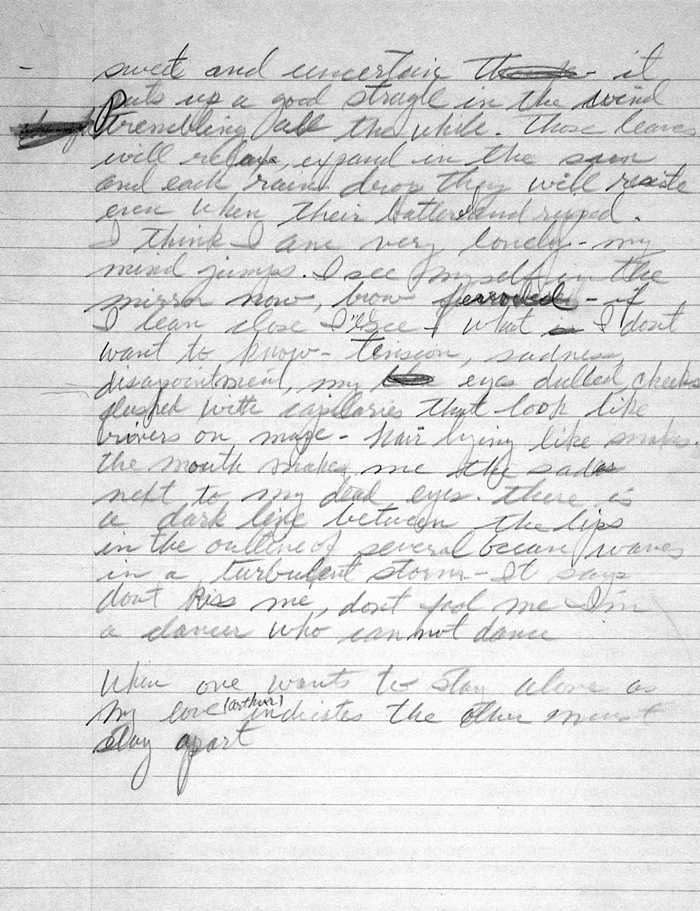 sweet and uncertain - it
Puts up a good strugle in the wind
trembling all the while. Those leaves
will relax, expand in the sun
and each rain drop they will resiste
even when their batterd and ripped.
I think I am very lonely - my
mind jumps. I see myself in the
mirror now, brow - if
I lean close I'll see - what I dont
want to know - tension, sadness,
disapointment, my eyes dulled, cheeks
flushed with capilaries that look like
rivers on maps - hair lying like snakes.
the mouth makes me the sadest
next to my dead eyes. there is
a dark line between the lips
in the outline of several ocean waves
in a turbulent storm - It says
dont kiss me, dont fool me I'm
a dancer who cannot dance
When one wants to stay alone as
my love (arthur) indicates the other must
stay apart